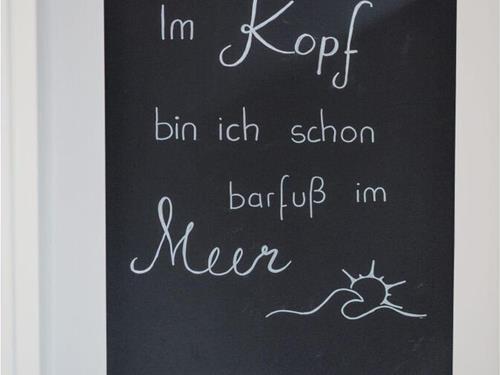 Im Kopf
bin ich schon
barfuß im
Meer